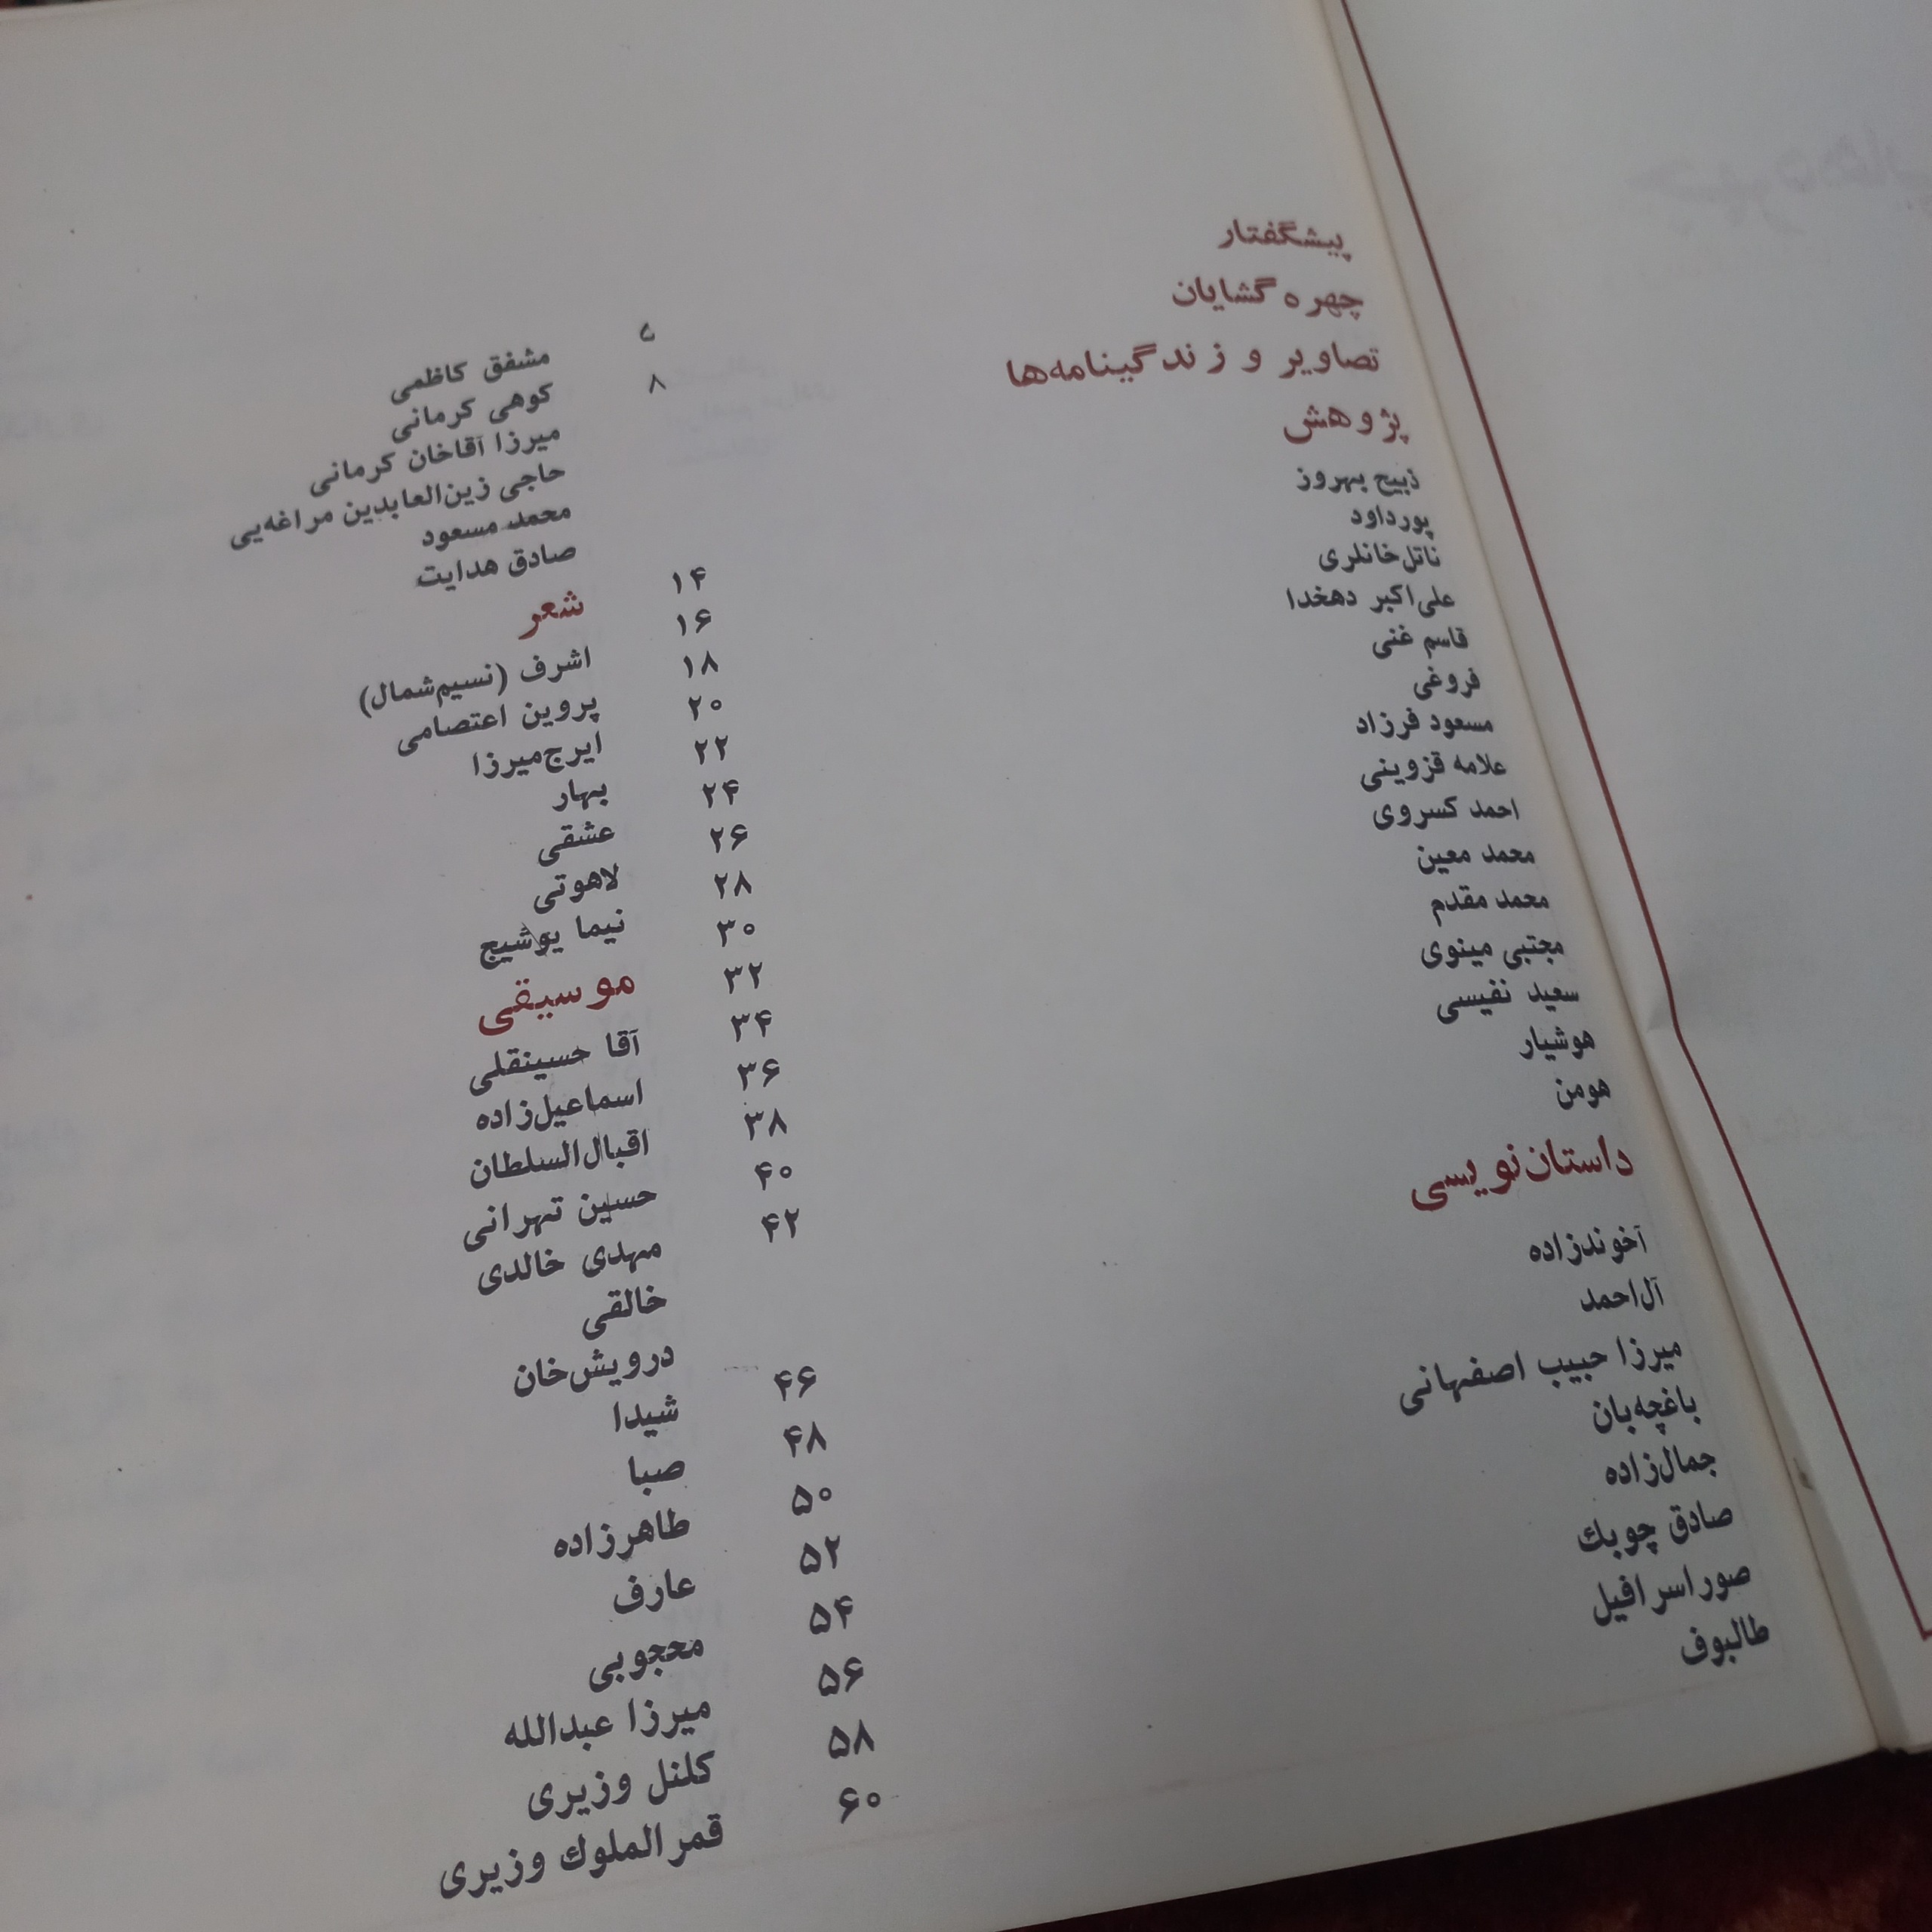 پیشگفتار
چهره گشایان ۸
تصاویر و زندگینامه‌ها
پژوهش
ذبیح بهروز ۱۴
پورداود ۱۶
ناتل‌خانلری ۱۸
علی‌اکبر دهخدا ۲۰
قاسم غنی ۲۲
فروغی ۲۴
مسعود فرزاد ۲۶
علامه قزوینی ۲۸
احمد کسروی ۳۰
محمد معین ۳۲
محمد مقدم ۳۴
مجتبی مینوی ۳۶
سعید نفیسی ۳۸
هوشیار ۴۰
هومن ۴۲
داستان‌نویسی
آخوندزاده ۴۶
آل‌احمد ۴۸
میرزا حبیب اصفهانی ۵۰
باغچه‌بان ۵۲
جمال‌زاده ۵۴
صادق چوبك ۵۶
صوراسرافیل ۵۸
طالبوف ۶۰
مشفق کاظمی
کوهی کرمانی
میرزا آقاخان کرمانی
حاجی زین‌العابدین مراغه‌یی
محمد مسعود
صادق هدایت
شعر
اشرف (نسیم‌شمال)
پروین اعتصامی
ایرج‌میرزا
بهار
عشقی
لاهوتی
نیما یوشیج
موسیقی
آقا حسینقلی
اسماعیل‌زاده
اقبال‌السلطان
حسین تهرانی
مهدی خالدی
خالقی
درویش‌خان
شیدا
صبا
طاهرزاده
عارف
محجوبی
میرزا عبدالله
کلنل وزیری
قمرالملوك وزیری